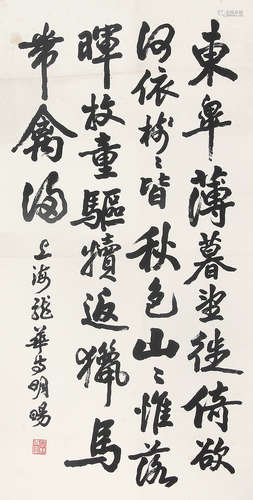 東皋薄暮望徙倚欲
何依樹〻皆秋色山〻惟落
暉牧童驅犢返獵馬
带禽歸
上海龍華寺明暘